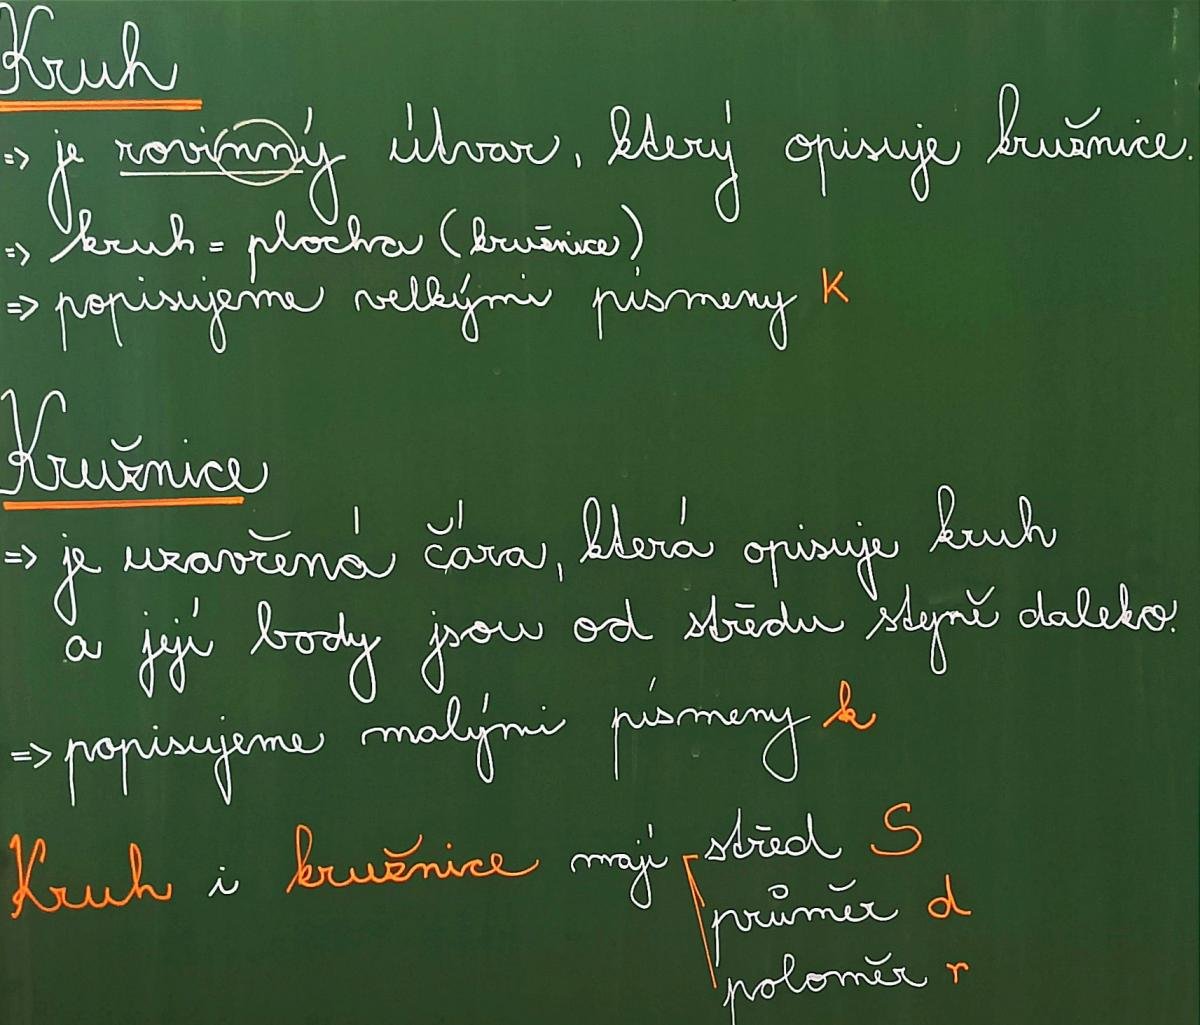 Kruh
=> je rovinný útvar, který opisuje kružnice.
=> kruh = plocha (kružnice)
=> popisujeme velkými písmeny K
Kružnice
=> je uzavřená čára, která opisuje kruh
a její body jsou od středu stejně daleko.
=> popisujeme malými písmeny k
Kruh i kružnice mají střed S
průměr d
poloměr r